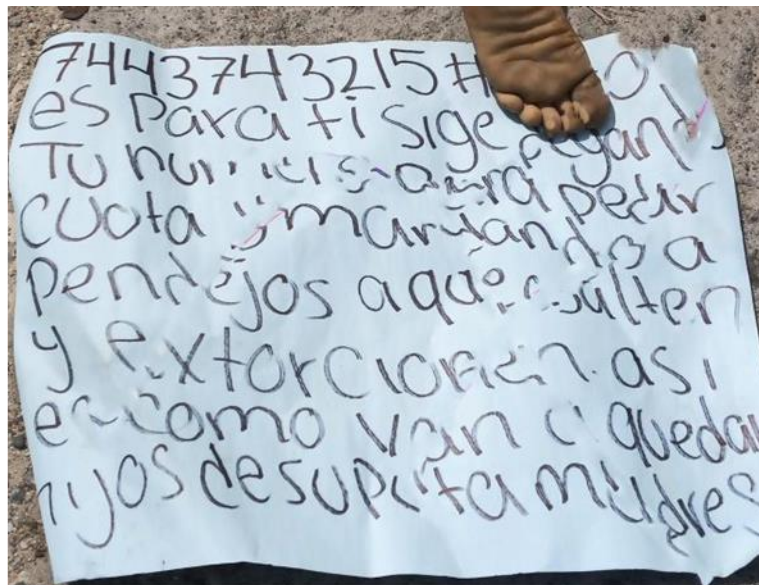 7443743215#
es para ti sige regando
Tu numero para pedir
cuota y mandando a
pendejos aque asalten
y extorcionen asi
es como van a quedar
hijos de su puta madres